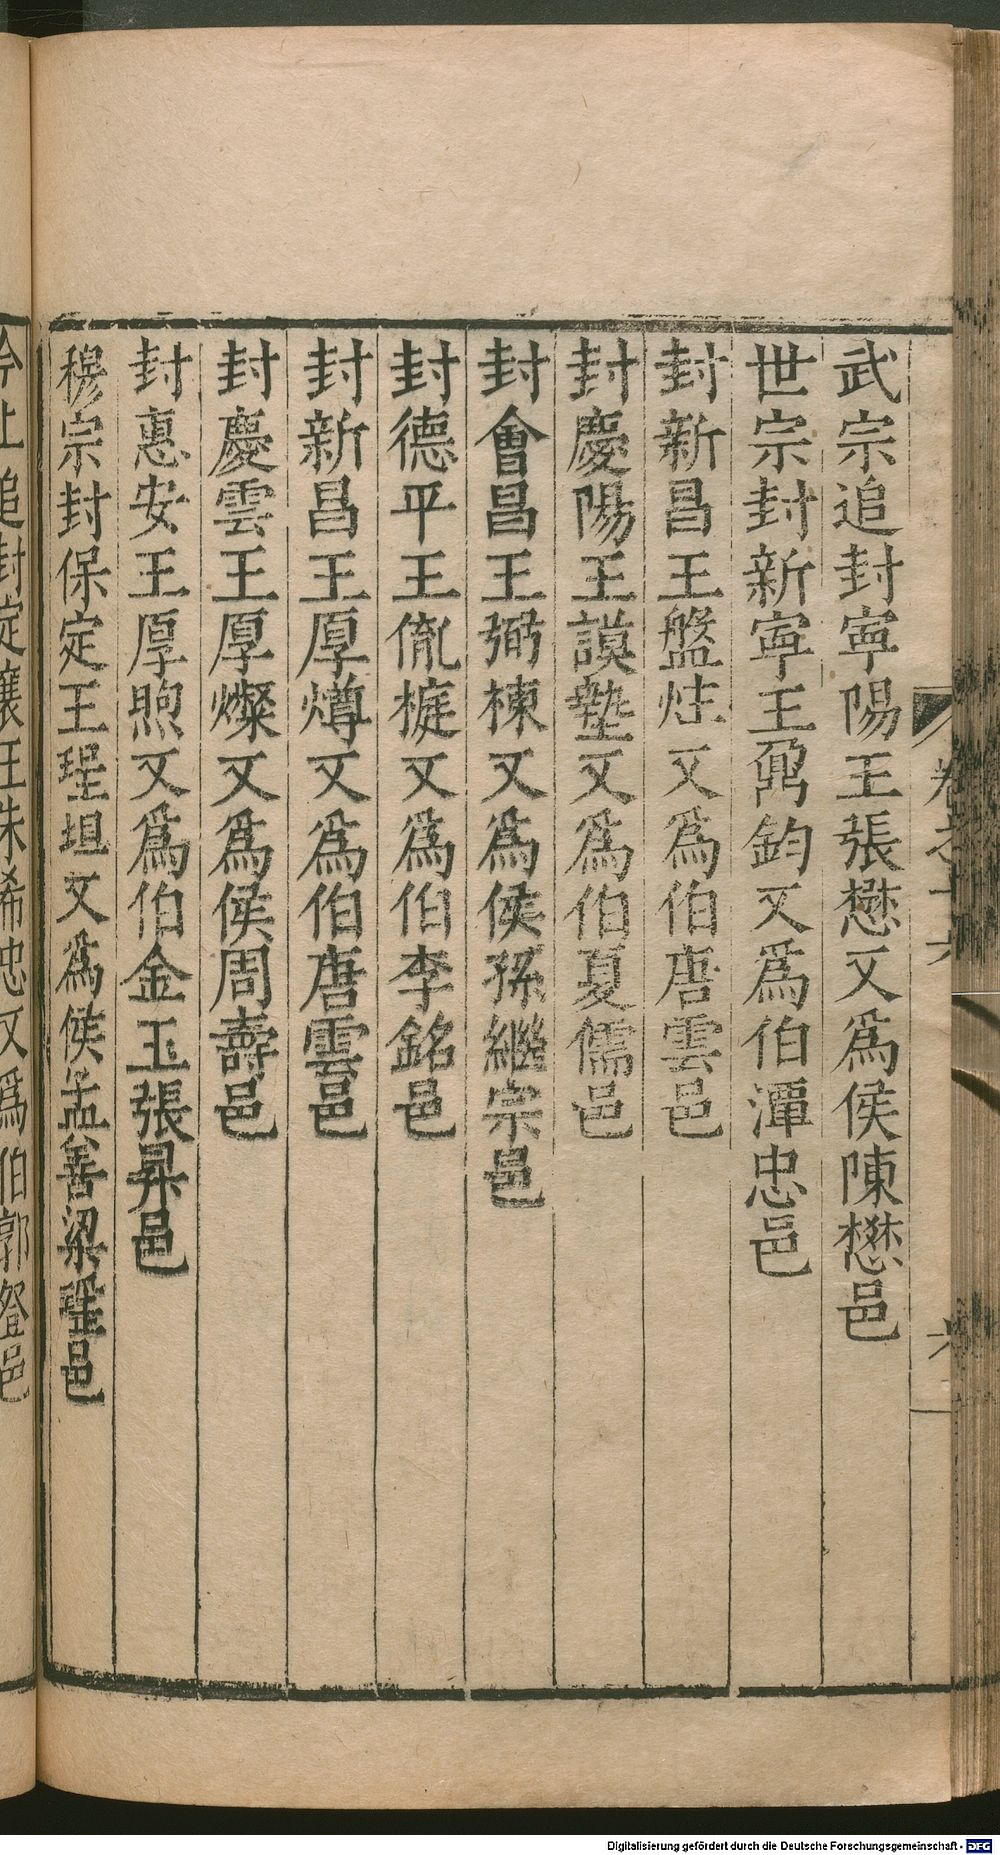 武宗追封寧陽王張懋又為侯陳懋邑
世宗封新寧王鼐鈞又為伯潭忠邑
封新昌王盤炷又為伯唐雲邑
封慶陽王謨塾又為伯夏儒邑
封會昌王弼棟又為侯孫繼宗邑
封德平王俒榳又為伯李銘邑
封新昌王厚燇又為伯唐雲邑
封慶雲王厚燦又為侯周壽邑
封惠安王厚煦又為伯金玉張昇邑
穆宗封保定王珵坦又為侯孟善梁珤邑
今上追封定襄王朱希忠又為伯郭登邑
卷之十六
Digitalisierung gefördert durch die Deutsche Forschungsgemeinschaft - DFG